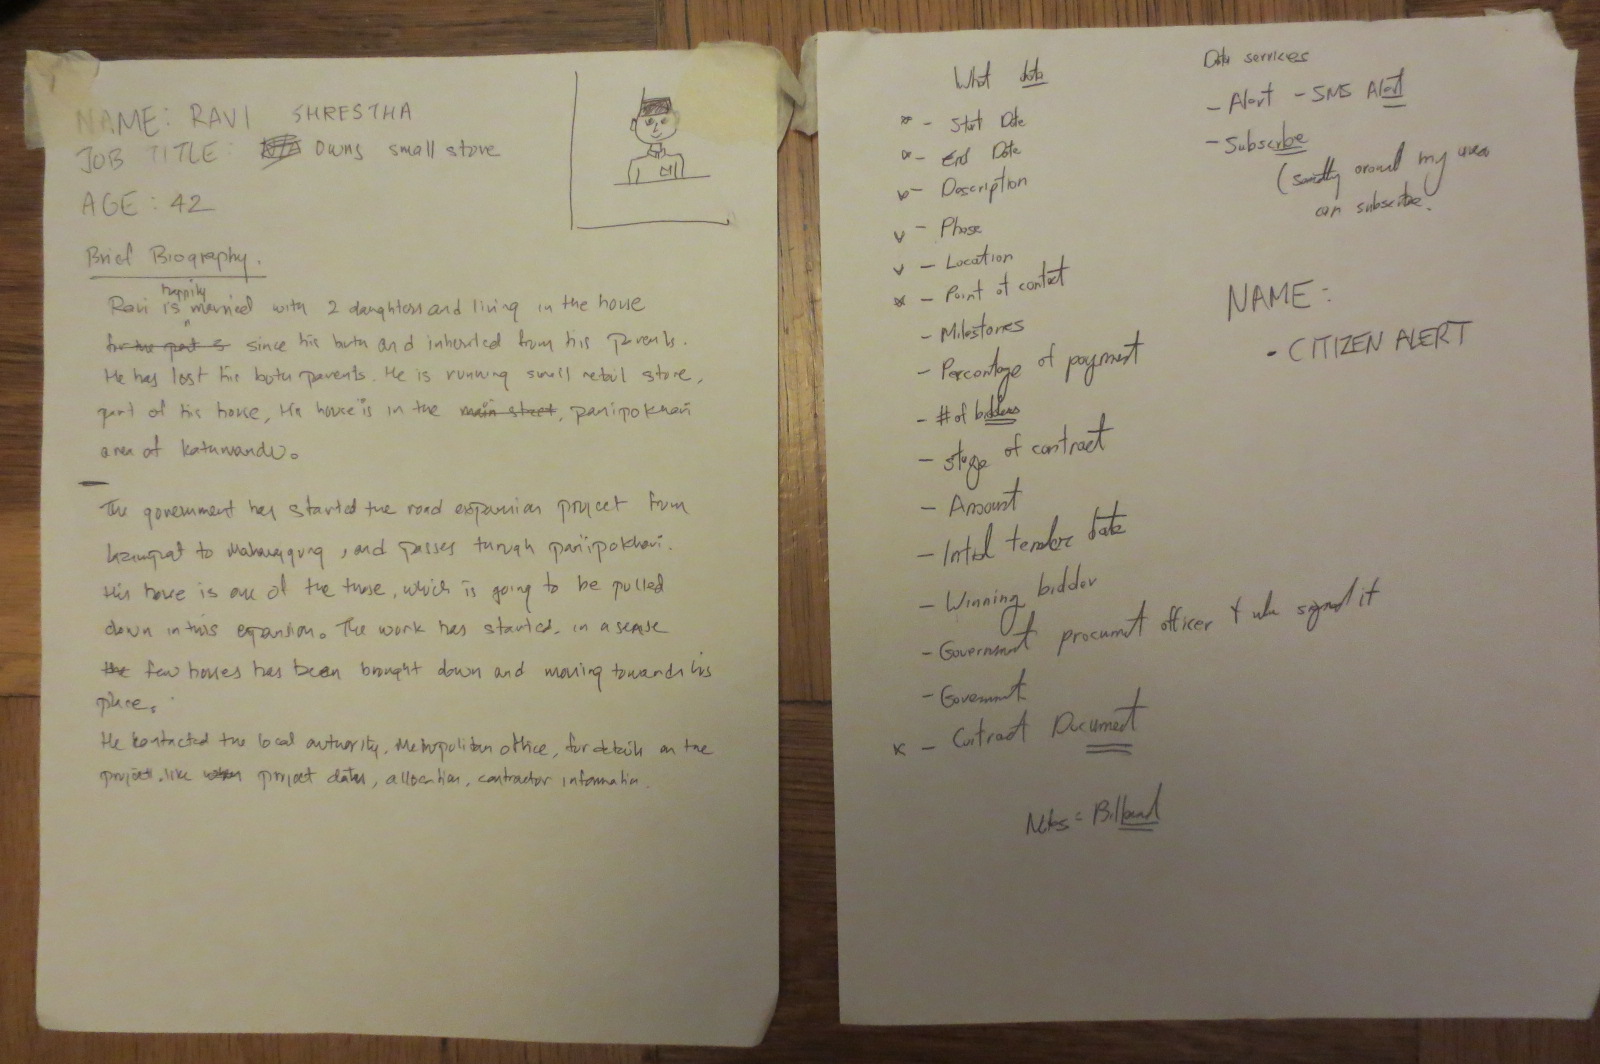 NAME: RAVI SHRESTHA
JOB TITLE: Owns small store
AGE: 42
Brief Biography.
happily
Ravi is married with 2 daughters and living in the house
for the past s since his birth and inherited from his parents.
He has lost his both parents. He is running small retail store,
part of his house, His house is in the main street, panipokhari
area of Katmandu.
The government has started the road expansion project from
lazimpat to Maharajgung, and passes through panipokhari.
His house is one of the those, which is going to be pulled
down in this expansion. The work has started, in a sense
the few houses has been brought down and moving towards his
place.
He contacted the local authority, Metropolitan office, for details on the
project, like when project dates, allocation, contractor information.
What data
* - Start Date
* - End Date
- Description
v - Phase
v - Location
* - Point of contact
- Milestones
- Percentage of payment
- # of bidders
- stage of contract
- Amount
- tender date
- Winning bidder
- Government procument officer & who signed it
- Government
x - Contract Document
Notes = Billboard
Data services
- Alert - SMS Alert
- Subscribe
( around my area
can subscribe.
NAME:
• CITIZEN ALERT